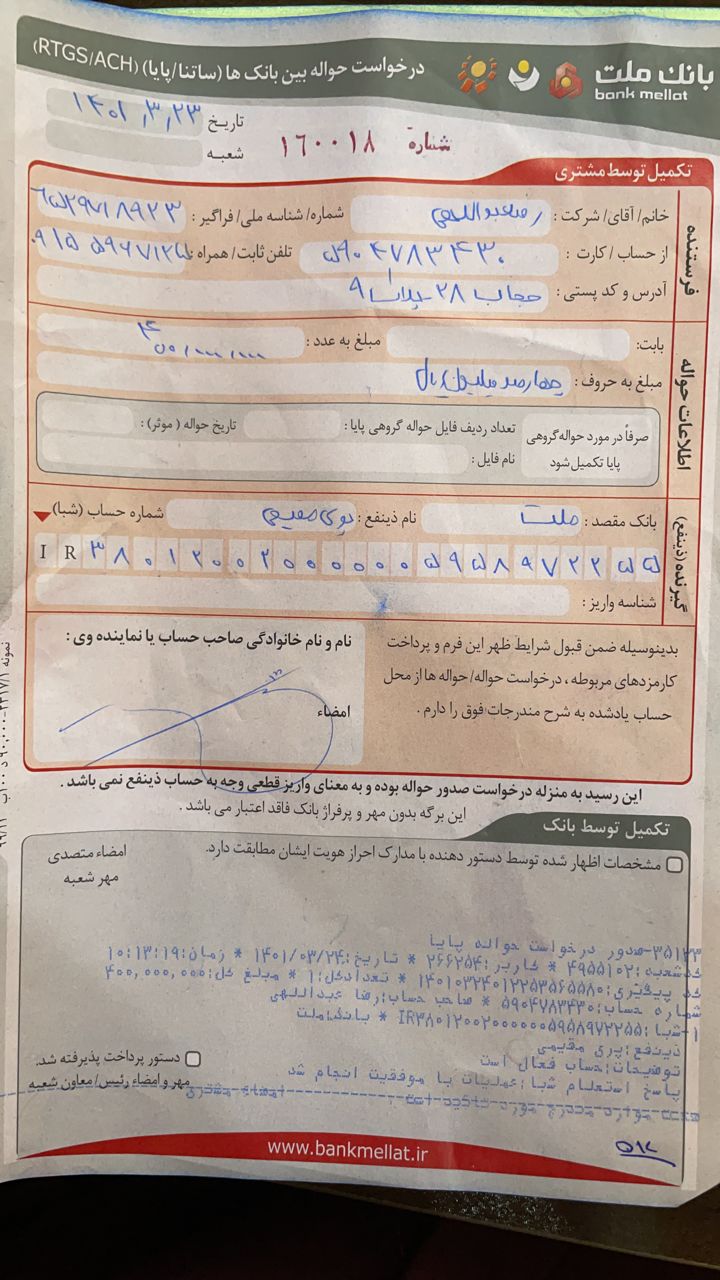 بانک ملت
bank mellat
درخواست حواله بین بانک ها (ساتنا/پایا) (RTGS/ACH)
تاریخ ۱۴۰۱,۳,۲۳
شماره ۱۶۰۰۱۸
شعبه :
تکمیل توسط مشتری
فرستنده
خانم/ آقای/ شرکت : رضا عبداللهی شماره/ شناسه ملی/ فراگیر :
از حساب / کارت : ۵۹۰۴۷۸۳۴۳۰ تلفن ثابت/ همراه :
آدرس و کد پستی : حجاب ۲۸
اطلاعات حواله
بابت: مبلغ به عدد : ۴۰۰/۰۰۰/۰۰۰
مبلغ به حروف : چهارصد میلیون ریال
صرفاً در مورد حواله گروهی پایا تکمیل شود
تعداد ردیف فایل حواله گروهی پایا : تاریخ حواله ( موثر) :
نام فایل :
گیرنده (ذینفع)
بانک مقصد : ملت نام ذینفع : پری مقیمی شماره حساب (شبا)
IR۳۸۰۱۲۰۰۲۰۰۰۰۰۰۵۹۵۸۹۷۲۲۵۵
شناسه واریز :
بدینوسیله ضمن قبول شرایط ظهر این فرم و پرداخت
کارمزدهای مربوطه ، درخواست حواله/ حواله ها از محل
حساب یادشده به شرح مندرجات فوق را دارم .
نام و نام خانوادگی صاحب حساب یا نماینده وی :
امضاء
این رسید به منزله درخواست صدور حواله بوده و به معنای واریز قطعی وجه به حساب ذینفع نمی باشد .
این برگه بدون مهر و پرفراژ بانک فاقد اعتبار می باشد .
تکمیل توسط بانک
مشخصات اظهار شده توسط دستور دهنده با مدارک احراز هویت ایشان مطابقت دارد.
امضاء متصدی
مهر شعبه
۳۵۱۲۳-صدور درخواست حواله پایا
کدشعبه:۴۹۵۵۱۰۲ * کاربر:۲۶۶۲۵۴ * تاریخ:۱۴۰۱/۰۳/۲۴ * زمان:۱۰:۱۳:۱۹
کد پیگیری:۱۴۰۱۰۳۲۴۰۱۲۲۵۳۵۶۵۵۸۰ * تعدادکل:۱ * مبلغ کل:۴۰۰,۰۰۰,۰۰۰
شماره حساب:۵۹۰۴۷۸۳۴۳۰ * صاحب حساب:رضا عبداللهی
۱-شبا:IR۳۸۰۱۲۰۰۲۰۰۰۰۰۰۵۹۵۸۹۷۲۲۵۵ * بانک:ملت
ذینفع:پری مقیمی
توضیحات:حساب فعال است
پاسخ استعلام شبا:عملیات با موفقیت انجام شد
دستور پرداخت پذیرفته شد.
مهر و امضاء رئیس/ معاون شعبه
www.bankmellat.ir